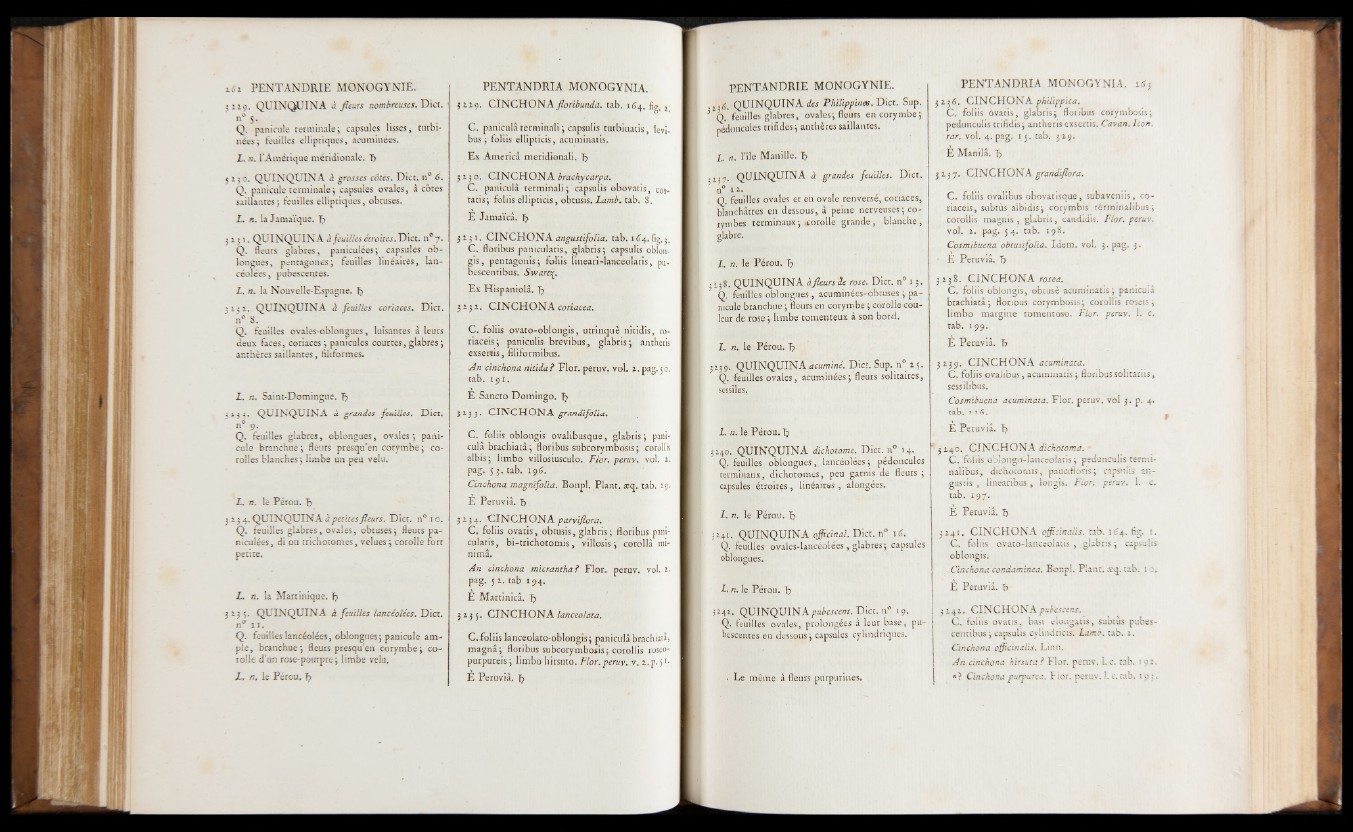 262 PENTANDRIE MONOGYNIE.
3229. QUINQUINA à fleurs nombreuses. Dict.
n° 5.
Q. panicule terminale; capsules lisses, turbi-
nées; feuilles elliptiques, acuminées.
L. n. l'Amérique méridionale. ♄
3230. QUINQUINA à grosses côtes. Dict. n° 6.
Q. panicule terminale; capsules ovales, à côtes
saillantes; feuilles elliptiques, obtuses.
L. n. la Jamaïque. ♄
3231. QUINQUINA à feuilles étroites. Dict. n° 7.
Q. fleurs glabres, paniculées; capsules ob-
longues, pentagones; feuilles linéaires, lan-
céolées, pubescentes.
L. n. la Nouvelle-Espagne. ♄
3232. QUINQUINA à feuilles coriaces. Dict.
n° 8.
Q. feuilles ovales-oblongues, luisantes à leurs
deux faces, coriaces; panicules courtes, glabres;
anthères saillantes, filiformes.
L. n. Saint-Domingue. ♄
3233. QUINQUINA à grandes feuilles. Dict.
n° 9.
Q. feuilles glabres, oblongues, ovales; pani-
cule branchue; fleurs presqu'en corymbe; co-
rolles blanches; limbe un peu velu.
L. n. le Pérou. ♄
3234. QUINQUINA à petites fleurs. Dict. n° 10.
Q. feuilles glabres, ovales, obtuses; fleurs pa-
niculées, di ou trichotomes, velues; corolle fort
petite.
L. n. la Martinique. ♄
3235. QUINQUINA à feuilles lancéolées. Dict.
n° 11.
Q. feuilles lancéolées, oblongues; panicule am-
ple, branchue; fleurs presqu'en corymbe; co-
rolle d'un rose-pourpre; limbe velu.
L. n. le Pérou. ♄
PENTANDRIA MONOGYNIA.
3229. CINCHONA floribunda. tab. 164. fig. 2.
C. paniculâ terminali; capsulis turbinatis, levi-
bus; foliis ellipticis, acuminatis.
Ex Americâ meridionali. ♄
3230. CINCHONA brachycarpa.
C. paniculâ terminali; capsulis obovatis, cos-
tatis; foliis ellipticis, obtusis. Lamb. tab. 8.
È Jamaïcâ. ♄
3231. CINCHONA angustifolia. tab. 164. fig. 3.
C. floribus paniculatis, glabris; capsulis oblon-
gis, pentagonis; foliis lineari-lanceolatis, pu-
bescentibus. Swartz.
Ex Hispaniolâ. ♄
3232. CINCHONA coriacea.
C. foliis ovato-oblongis, utrinquè nitidis, co-
riaceis; paniculis brevibus, glabris; antheris
exsertis, filiformibus.
An cinchona nitida? Flor. peruv. vol. 2. pag. 50.
tab. 191.
È Sancto Domingo. ♄
3233. CINCHONA grandifolia.
C. foliis oblongis ovalibusque, glabris; pani-
culâ brachiatâ; floribus subcorymbosis; corollis
albis; limbo villosiusculo. Flor. peruv. vol. 2.
pag. 53. tab. 196.
Cinchona magnifolia. Bonpl. Plant. æq. tab. 29.
È Peruviâ. ♄
3234. CINCHONA parviflora.
C. foliis ovatis, obtusis, glabris; floribus pani-
culatis, bi-trichotomis, villosis; corollâ mi-
nimâ.
An cinchona micrantha? Flor. peruv. vol. 2.
pag. 52. tab 194.
È Martinicâ. ♄
3235. CINCHONA lanceolata.
C. foliis lanceolato-oblongis; paniculâ brachiatâ,
magnâ; floribus subcorymbosis; corollis roseo-
purpureis; limbo hirsuto. Flor. peruv. v. 2. p. 51.
È Peruviâ. ♄
PENTANDRIE MONOGYNIE.
3236. QUINQUINA des Philippines. Dict. Sup.
Q. feuilles glabres, ovales; fleurs en corymbe;
pédoncules trifides; anthères saillantes.
L. n. l'île Manille. ♄
3237. QUINQUINA à grandes feuilles. Dict.
n° 12.
Q. feuilles ovales et en ovale renversé, coriaces,
blanchâtres en dessous, à peine nerveuses; co-
rymbes terminaux; corolle grande, blanche,
glabre.
L. n. le Pérou. ♄
3238. QUINQUINA à fleurs de rose. Dict. n° 13.
Q. feuilles oblongues, acuminées-obtuses; pa-
nicule branchue; fleurs en corymbe; corolle cou-
leur de rose; limbe tomenteux à son bord.
L. n. le Pérou. ♄
3239. QUINQUINA acuminé. Dict. Sup. n° 25.
Q. feuilles ovales, acuminées; fleurs solitaires,
sessiles.
L. n. le Pérou. ♄
3240. QUINQUINA dichotome. Dict. n° 14.
Q. feuilles oblongues, lancéolées; pédoncules
terminaux, dichotomes, peu garnis de fleurs;
capsules étroites, linéaires, alongées.
L. n. le Pérou. ♄
3241. QUINQUINA officinal. Dict. n° 16.
Q. feuilles ovales-lancéolées, glabres; capsules
oblongues.
L. n. le Pérou. ♄
3242. QUINQUINA pubescent. Dict. n° 19.
Q. feuilles ovales, prolongées à leur base, pu-
bescentes en dessous; capsules cylindriques.
Le même à fleurs purpurines.
PENTANDRIA MONOGYNIA. 263
3236. CINCHONA philippica.
C. foliis ovatis, glabris; floribus corymbosis;
pedunculis trifidis; antheris exsertis. Cavan. Icon.
rar. vol. 4. pag. 15. tab. 329.
È Manilâ. ♄
3237. CINCHONA grandiflora.
C. foliis ovalibus obovatisque, subaveniis, co-
riaceis, subtùs albidis; corymbis terminalibus;
corollis magnis, glabris, candidis. Flor. peruv.
vol. 2. pag. 54. tab. 198.
Cosmibuena obtusifolia. Idem. vol. 3. pag. 3.
È Peruviâ. ♄
3238. CINCHONA rosea.
C. foliis oblongis, obtusè acuminatis; paniculâ
brachiatâ; floribus corymbosis; corollis roseis;
limbo margine tomentoso. Flor. peruv. l. c.
tab. 199.
È Peruviâ. ♄
3239. CINCHONA acuminata.
C. foliis ovalibus, acuminatis; floribus solitariis,
sessilibus.
Cosmibuena acuminata. Flor. peruv. vol 3. p. 4.
tab. 226.
È Peruviâ. ♄
3240. CINCHONA dichotoma.
C. foliis oblongo-lanceolatis; pedunculis termi-
nalibus, dichotomis, paucifloris; capsulis an-
gustis, linearibus, longis. Flor. peruv. l. c.
tab. 197.
È Peruviâ. ♄
3241. CINCHONA officinalis. tab. 164. fig. 1.
C. foliis ovato-lanceolatis, glabris; capsulis
oblongis.
Cinchona condaminea. Bonpl. Plant. æq. tab. 10.
È Peruviâ. ♄
3242. CINCHONA pubescens.
C. foliis ovatis, basi elongatis, subtùs pubes-
centibus; capsulis cylindricis. Lamb. tab. 2.
Cinchona officinalis. Linn.
An cinchona hirsuta? Flor. peruv. l. c. tab. 192.
*? Cinchona purpurea. Flor. peruv. l. c. tab. 193.